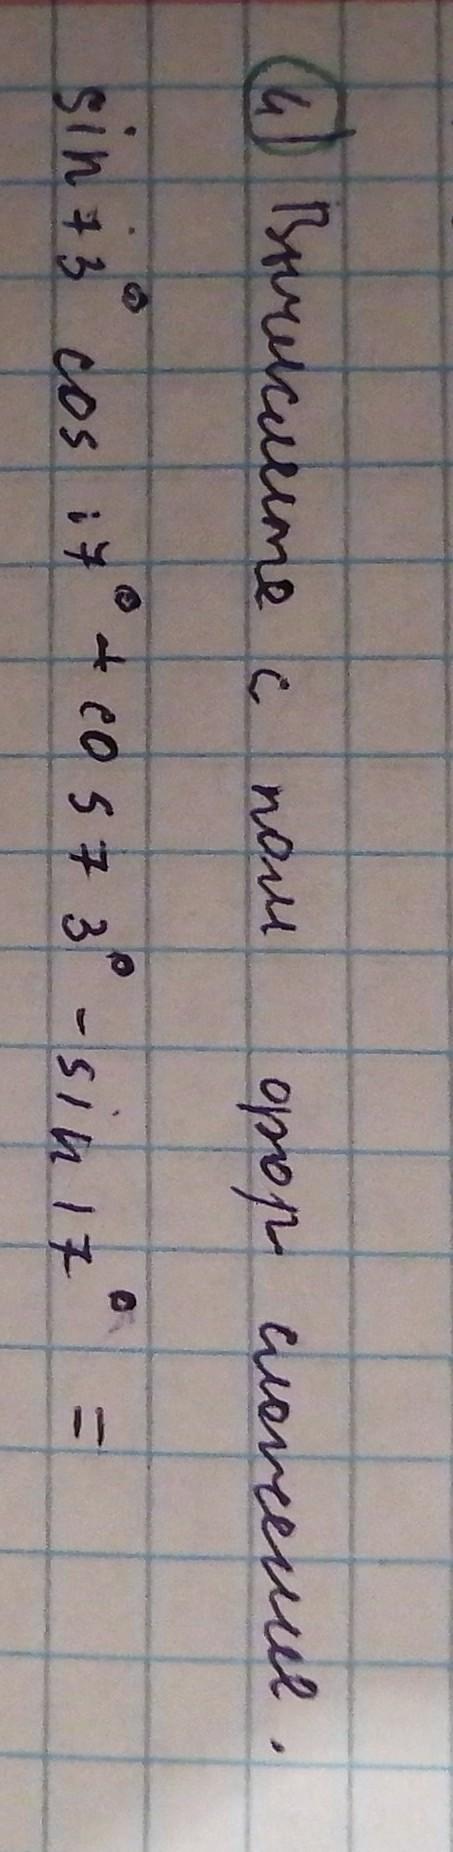 4) Вычислите с пом фор сложения.
sin 73° cos 17° + cos 73° - sin 17° =